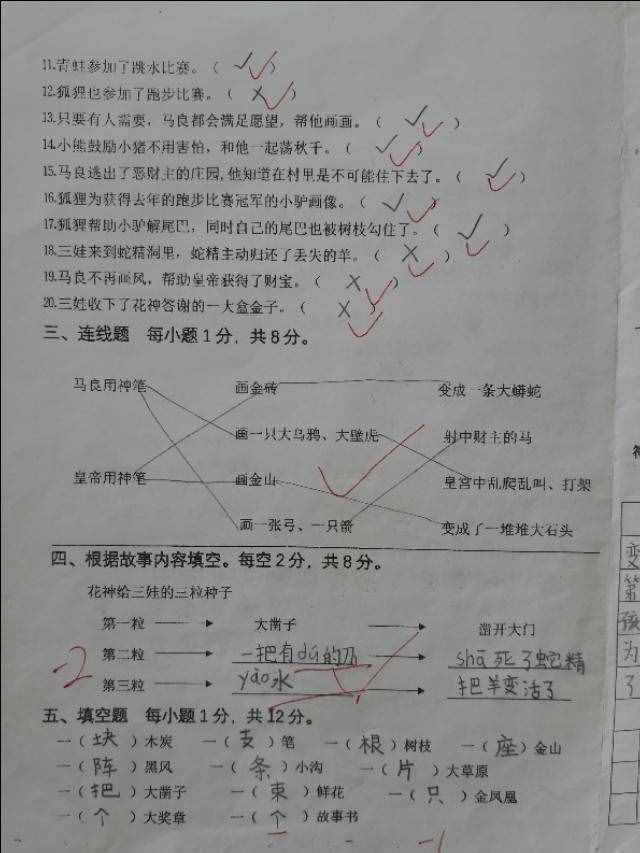 11.青蛙参加了跳水比赛。（ ✓ ）
12.狐狸也参加了跑步比赛。（ × ）
13.只要有人需要，马良都会满足愿望，帮他画画。（ ✓ ）
14.小熊鼓励小猪不用害怕，和他一起荡秋千。（ ✓ ）
15.马良逃出了恶财主的庄园,他知道在村里是不可能住下去了。（ ✓ ）
16.狐狸为获得去年的跑步比赛冠军的小驴画像。（ ✓ ）
17.狐狸帮助小驴解尾巴，同时自己的尾巴也被树枝勾住了。（ ✓ ）
18.三娃来到蛇精洞里，蛇精主动归还了丢失的羊。（ × ）
19.马良不再画风，帮助皇帝获得了财宝。（ × ）
20.三娃收下了花神答谢的一大盒金子。（ × ）
三、连线题 每小题1分，共8分。
马良用神笔 画金砖 变成一条大蟒蛇
画一只大乌鸦、大壁虎 射中财主的马
皇帝用神笔 画金山 皇宫中乱爬乱叫、打架
画一张弓、一只箭 变成了一堆堆大石头
四、根据故事内容填空。每空2分，共8分。
花神给三娃的三粒种子
第一粒 大凿子 凿开大门
第二粒 一把有dú的刀 shā死了蛇精
第三粒 yào水 把羊变活了
-2
五、填空题 每小题1分，共12分。
一（块）木炭 一（支）笔 一（根）树枝 一（座）金山
一（阵）黑风 一（条）小沟 一（片）大草原
一（把）大凿子 一（束）鲜花 一（只）金凤凰
一（个）大奖章 一（个）故事书
-1
变
第
孩
为
了